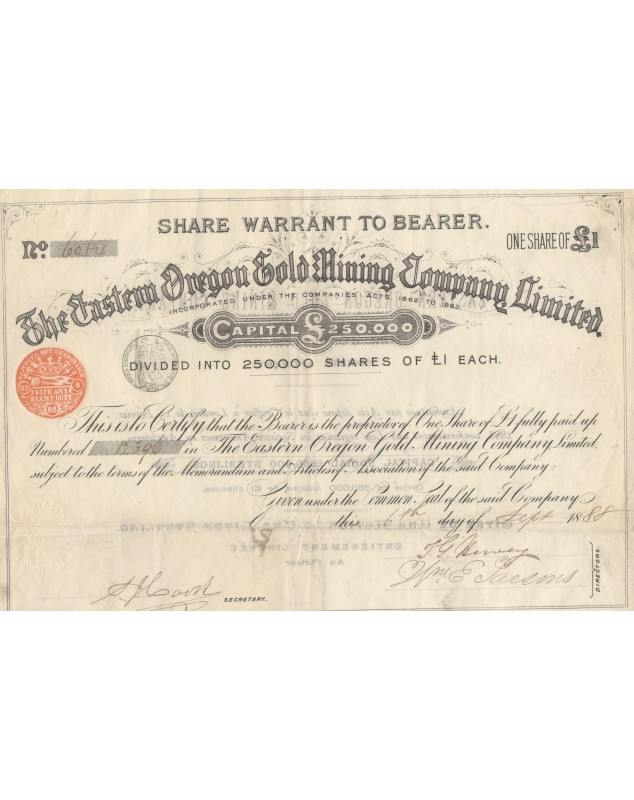 SHARE WARRANT TO BEARER.
No.
ONE SHARE OF £1
The Eastern Oregon Gold Mining Company Limited.
INCORPORATED UNDER THE COMPANIES ACTS, 1862 TO 1883.
CAPITAL £250,000
DIVIDED INTO 250,000 SHARES OF £1 EACH.
WITH ANY
STAMP DUTY
88
This is to Certify that the Bearer is the proprietor of One Share of £1 fully paid up
Numbered in The Eastern Oregon Gold Mining Company, Limited,
subject to the terms of the Memorandum and Articles of Association of the said Company:
Given under the Common Seal of the said Company
this 6th day of Sept 1888
Wm E Parsons
DIRECTORS.
SECRETARY.
ENTIÈREMENT LIBÉRÉE
Au Porteur